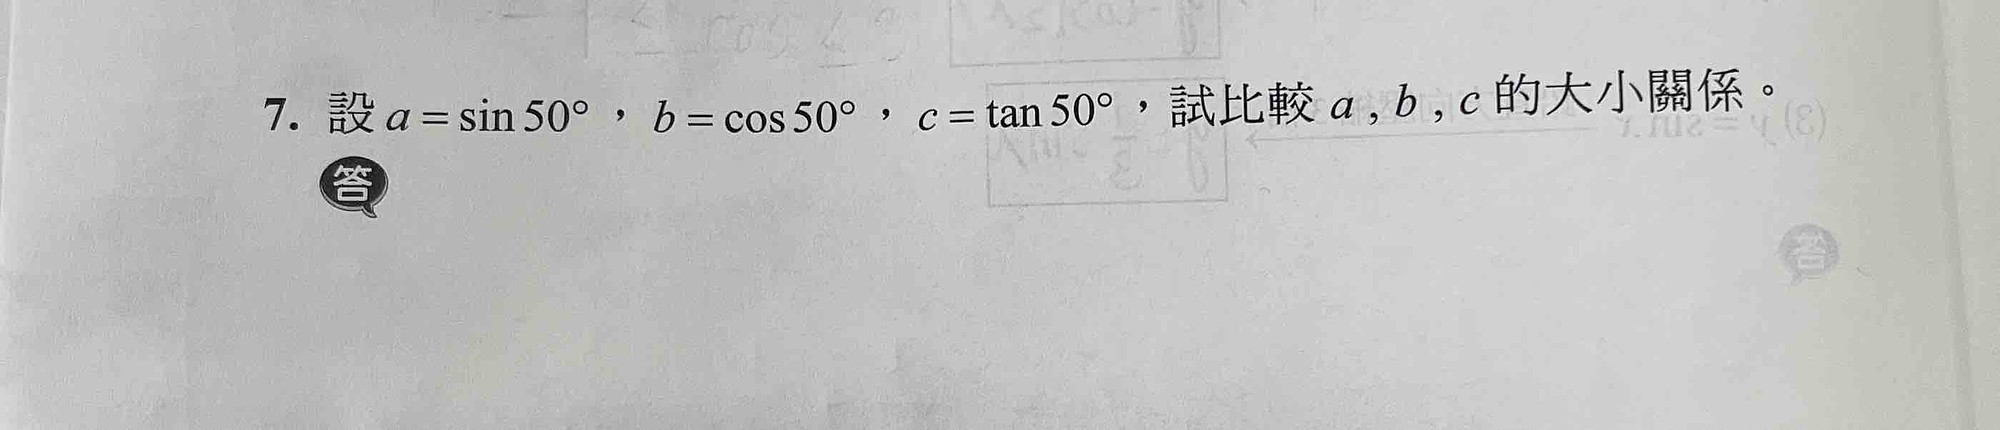 7. 設 a = sin 50° ， b = cos 50° ， c = tan 50° ，試比較 a , b , c 的大小關係。
答